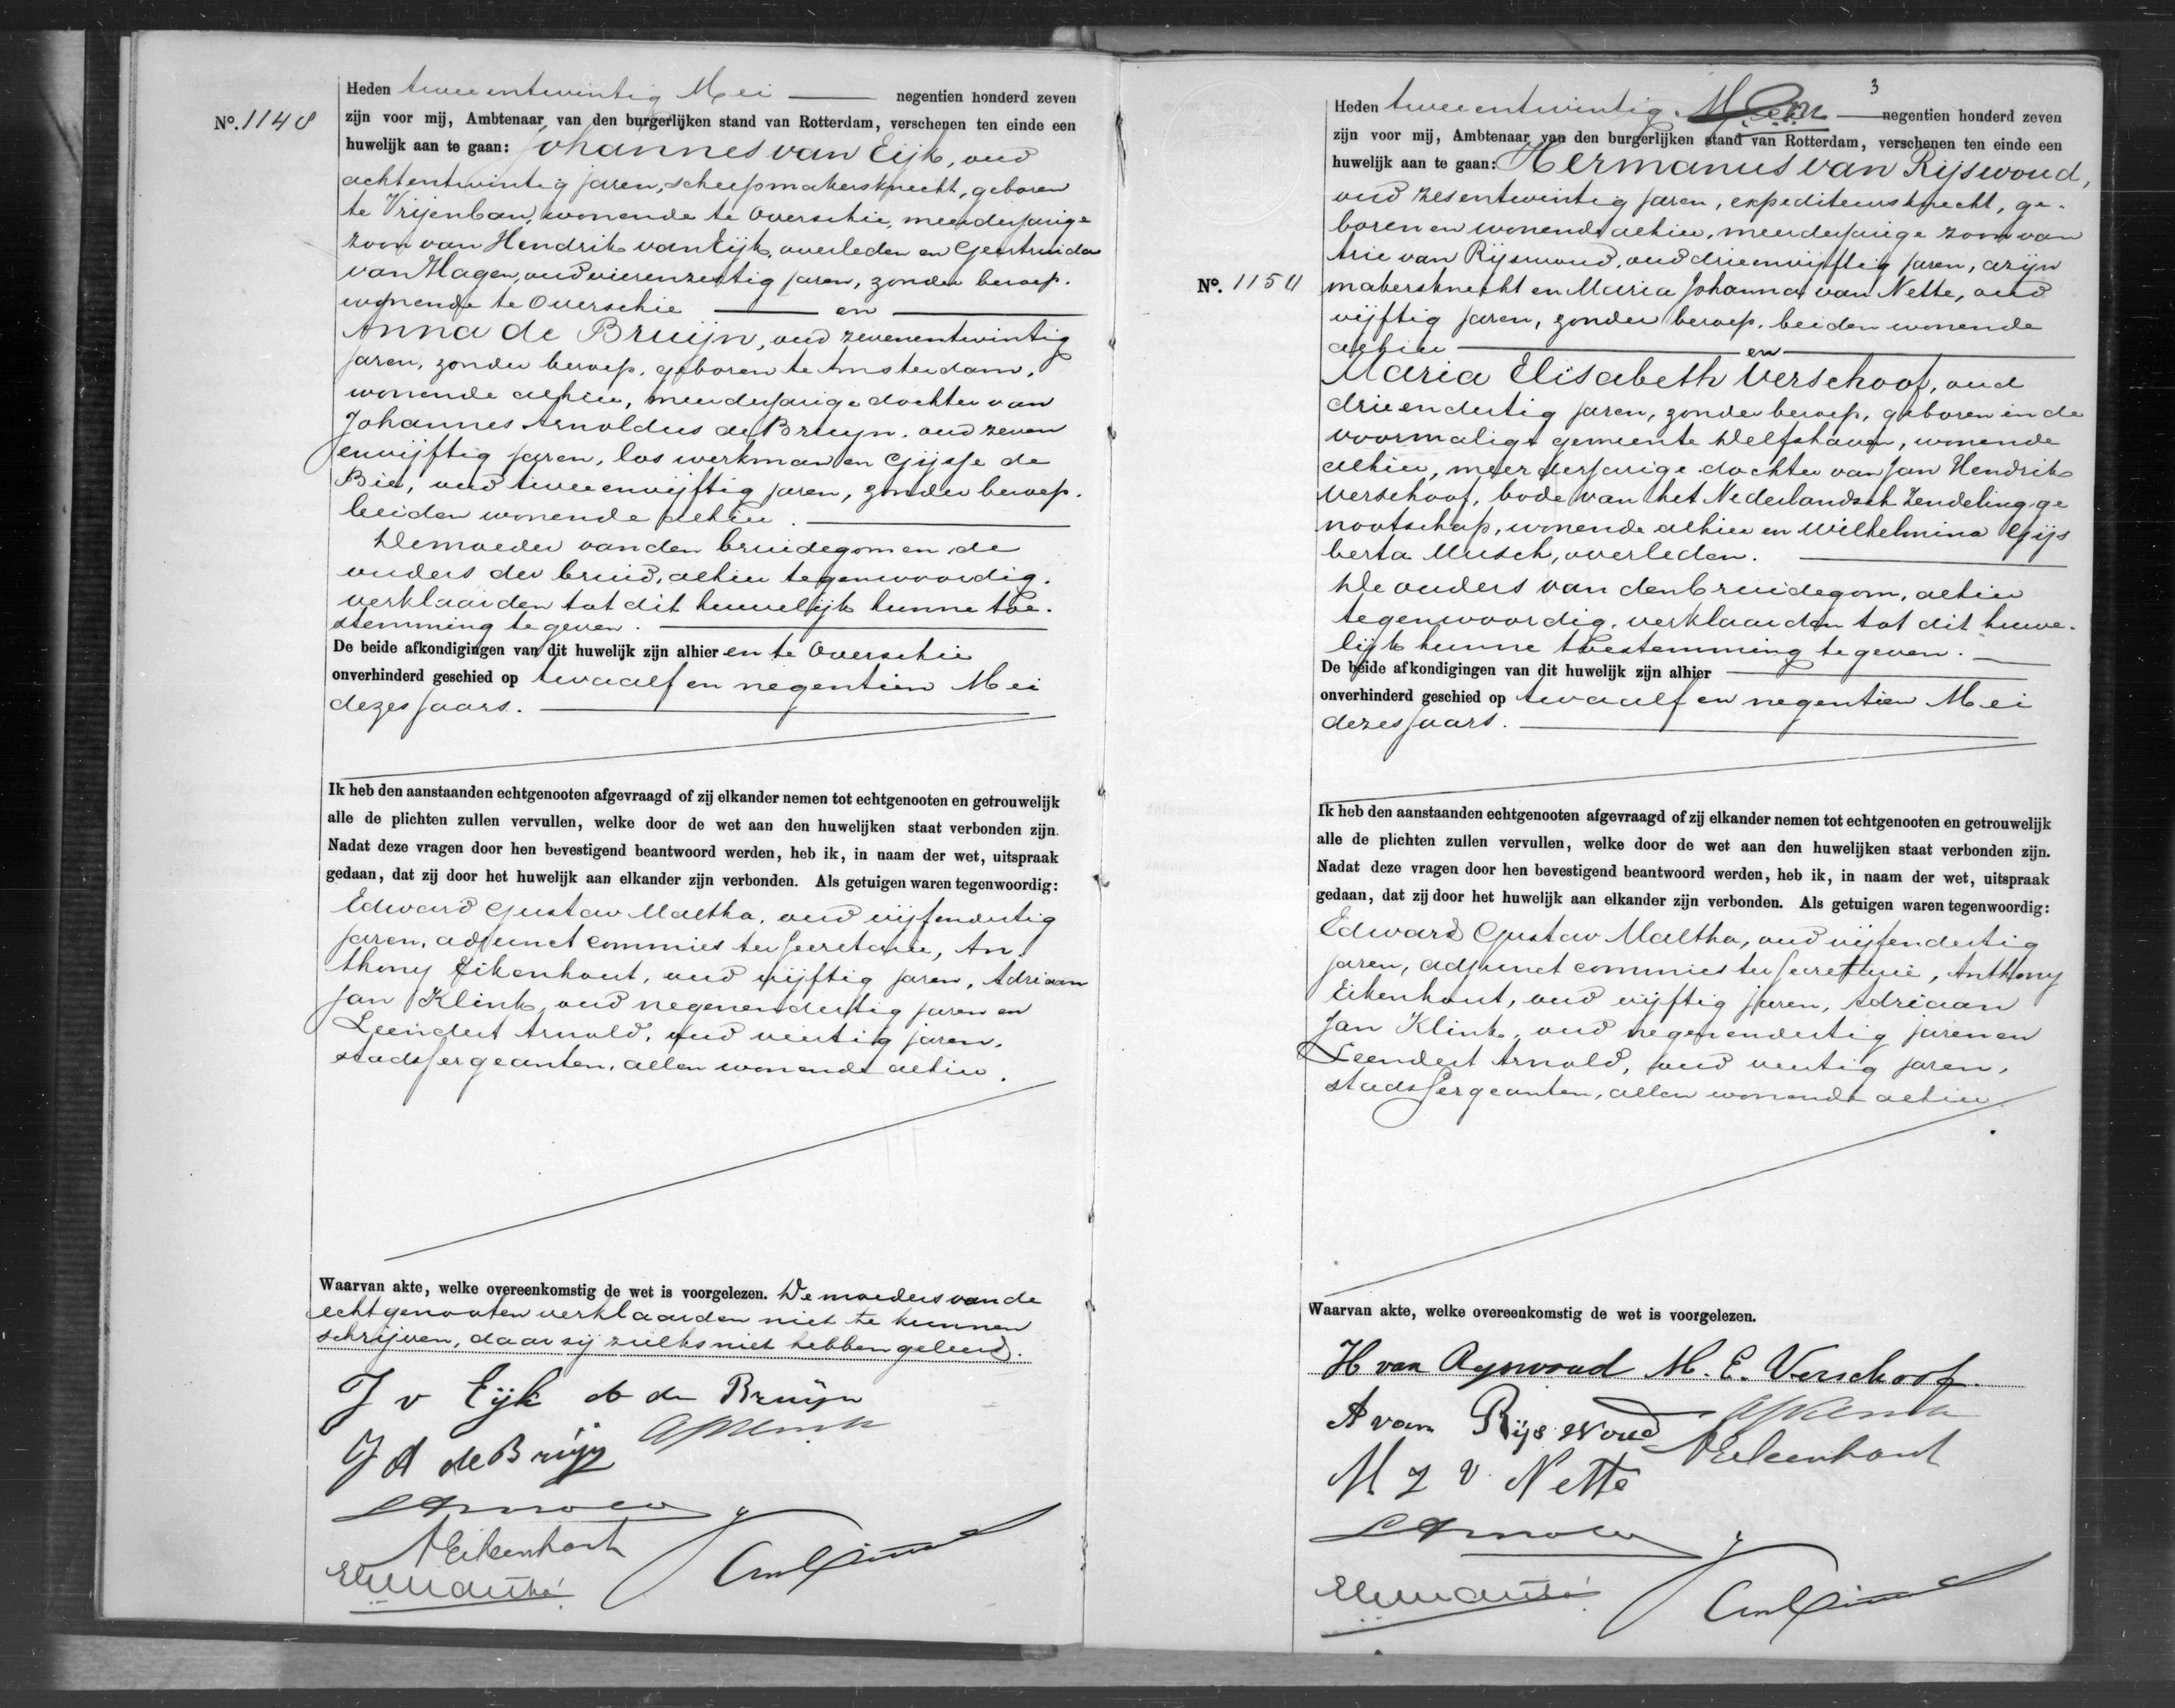 No. 1148
Heden tweeentwintig Mei negentien honderd zeven
zijn voor mij, Ambtenaar van den burgerlijken stand van Rotterdam, verschenen ten einde een
huwelijk aan te gaan: Johannes van Eijk, oud
achtentwintig jaren, scheepmakersknecht, geboren
te Vrijenban, wonende te Overschie, meerderjarige
zoon van Hendrik van Eijk, overleden en Geertruida
van Hagen, oud vierenzestig jaren, zonder beroep.
wonende te Overschie en
Anna de Bruijn, oud zevenentwintig
jaren, zonder beroep, geboren te Amsterdam,
wonende alhier, meerderjarige dochter van
Johannes Arnoldus de Bruijn, oud zeven
envijftig jaren, los werkman en Gijsje de
Bie, oud tweeenvijftig jaren, zonder beroep.
beiden wonende alhier.
De moeder van den bruidegom en de
ouders der bruid, alhier tegenwoordig.
verklaarden tot dit huwelijk hunne toe-
stemming te geven.
De beide afkondigingen van dit huwelijk zijn alhier en te Overschie
onverhinderd geschied op twaalf en negentien Mei
dezes jaars.
Ik heb den aanstaanden echtgenooten afgevraagd of zij elkander nemen tot echtgenooten en getrouwelijk
alle de plichten zullen vervullen, welke door de wet aan den huwelijken staat verbonden zijn.
Nadat deze vragen door hen bevestigend beantwoord werden, heb ik, in naam der wet, uitspraak
gedaan, dat zij door het huwelijk aan elkander zijn verbonden. Als getuigen waren tegenwoordig:
Edward Gustav Maltha, oud vijfendertig
jaren, adjunct commies ter secretarie, An
thony Eikenhout, oud vijftig jaren, Adriaan
Jan Klink, oud negenendertig jaren en
Leendert Arnold, oud veertig jaren,
stadssergeanten, allen wonende alhier.
Waarvan akte, welke overeenkomstig de wet is voorgelezen. De moeders van de
echtgenooten verklaarden niet te kunnen
schrijven, daar zij zulks niet hebben geleerd.
J v Eijk A de Bruijn
J A de Bruijn AJKlink
LArnold
AEikenhout
EGMaltha
3
Heden tweeentwintig Mei negentien honderd zeven
zijn voor mij, Ambtenaar van den burgerlijken stand van Rotterdam, verschenen ten einde een
huwelijk aan te gaan: Hermanus van Rijswoud,
oud zesentwintig jaren, expediteursknecht, ge-
boren en wonende alhier, meerderjarige zoon van
Arie van Rijswoud, oud drieenvijftig jaren, azijn
No. 1150
makersknecht en Maria Johanna van Nette, oud
vijftig jaren, zonder beroep, beiden wonende
alhier en
Maria Elisabeth Verschoof, oud
drieendertig jaren, zonder beroep, geboren in de
voormalige gemeente Delfshaven, wonende
alhier, meerderjarige dochter van Jan Hendrik
Verschoof, bode van het Nederlandsch Zendelingge
nootschap, wonende alhier en Wilhelmina Gijs
berta Musch, overleden.
De ouders van den bruidegom, alhier
tegenwoordig, verklaarden tot dit huwe-
lijk hunne toestemming te geven.
De beide afkondigingen van dit huwelijk zijn alhier
onverhinderd geschied op twaalf en negentien Mei
dezes jaars.
Ik heb den aanstaanden echtgenooten afgevraagd of zij elkander nemen tot echtgenooten en getrouwelijk
alle de plichten zullen vervullen, welke door de wet aan den huwelijken staat verbonden zijn.
Nadat deze vragen door hen bevestigend beantwoord werden, heb ik, in naam der wet, uitspraak
gedaan, dat zij door het huwelijk aan elkander zijn verbonden. Als getuigen waren tegenwoordig:
Edward Gustav Maltha, oud vijfendertig
jaren, adjunct commies ter secretarie, Anthony
Eikenhout, oud vijftig jaren, Adriaan
Jan Klink, oud negenendertig jaren en
Leendert Arnold, oud veertig jaren,
stadssergeanten, allen wonende alhier.
Waarvan akte, welke overeenkomstig de wet is voorgelezen.
H van Rijswoud M. E. Verschoof.
A van Rijswoud AJKlink
AEikenhout
M J v. Nette
LArnold
EGMaltha